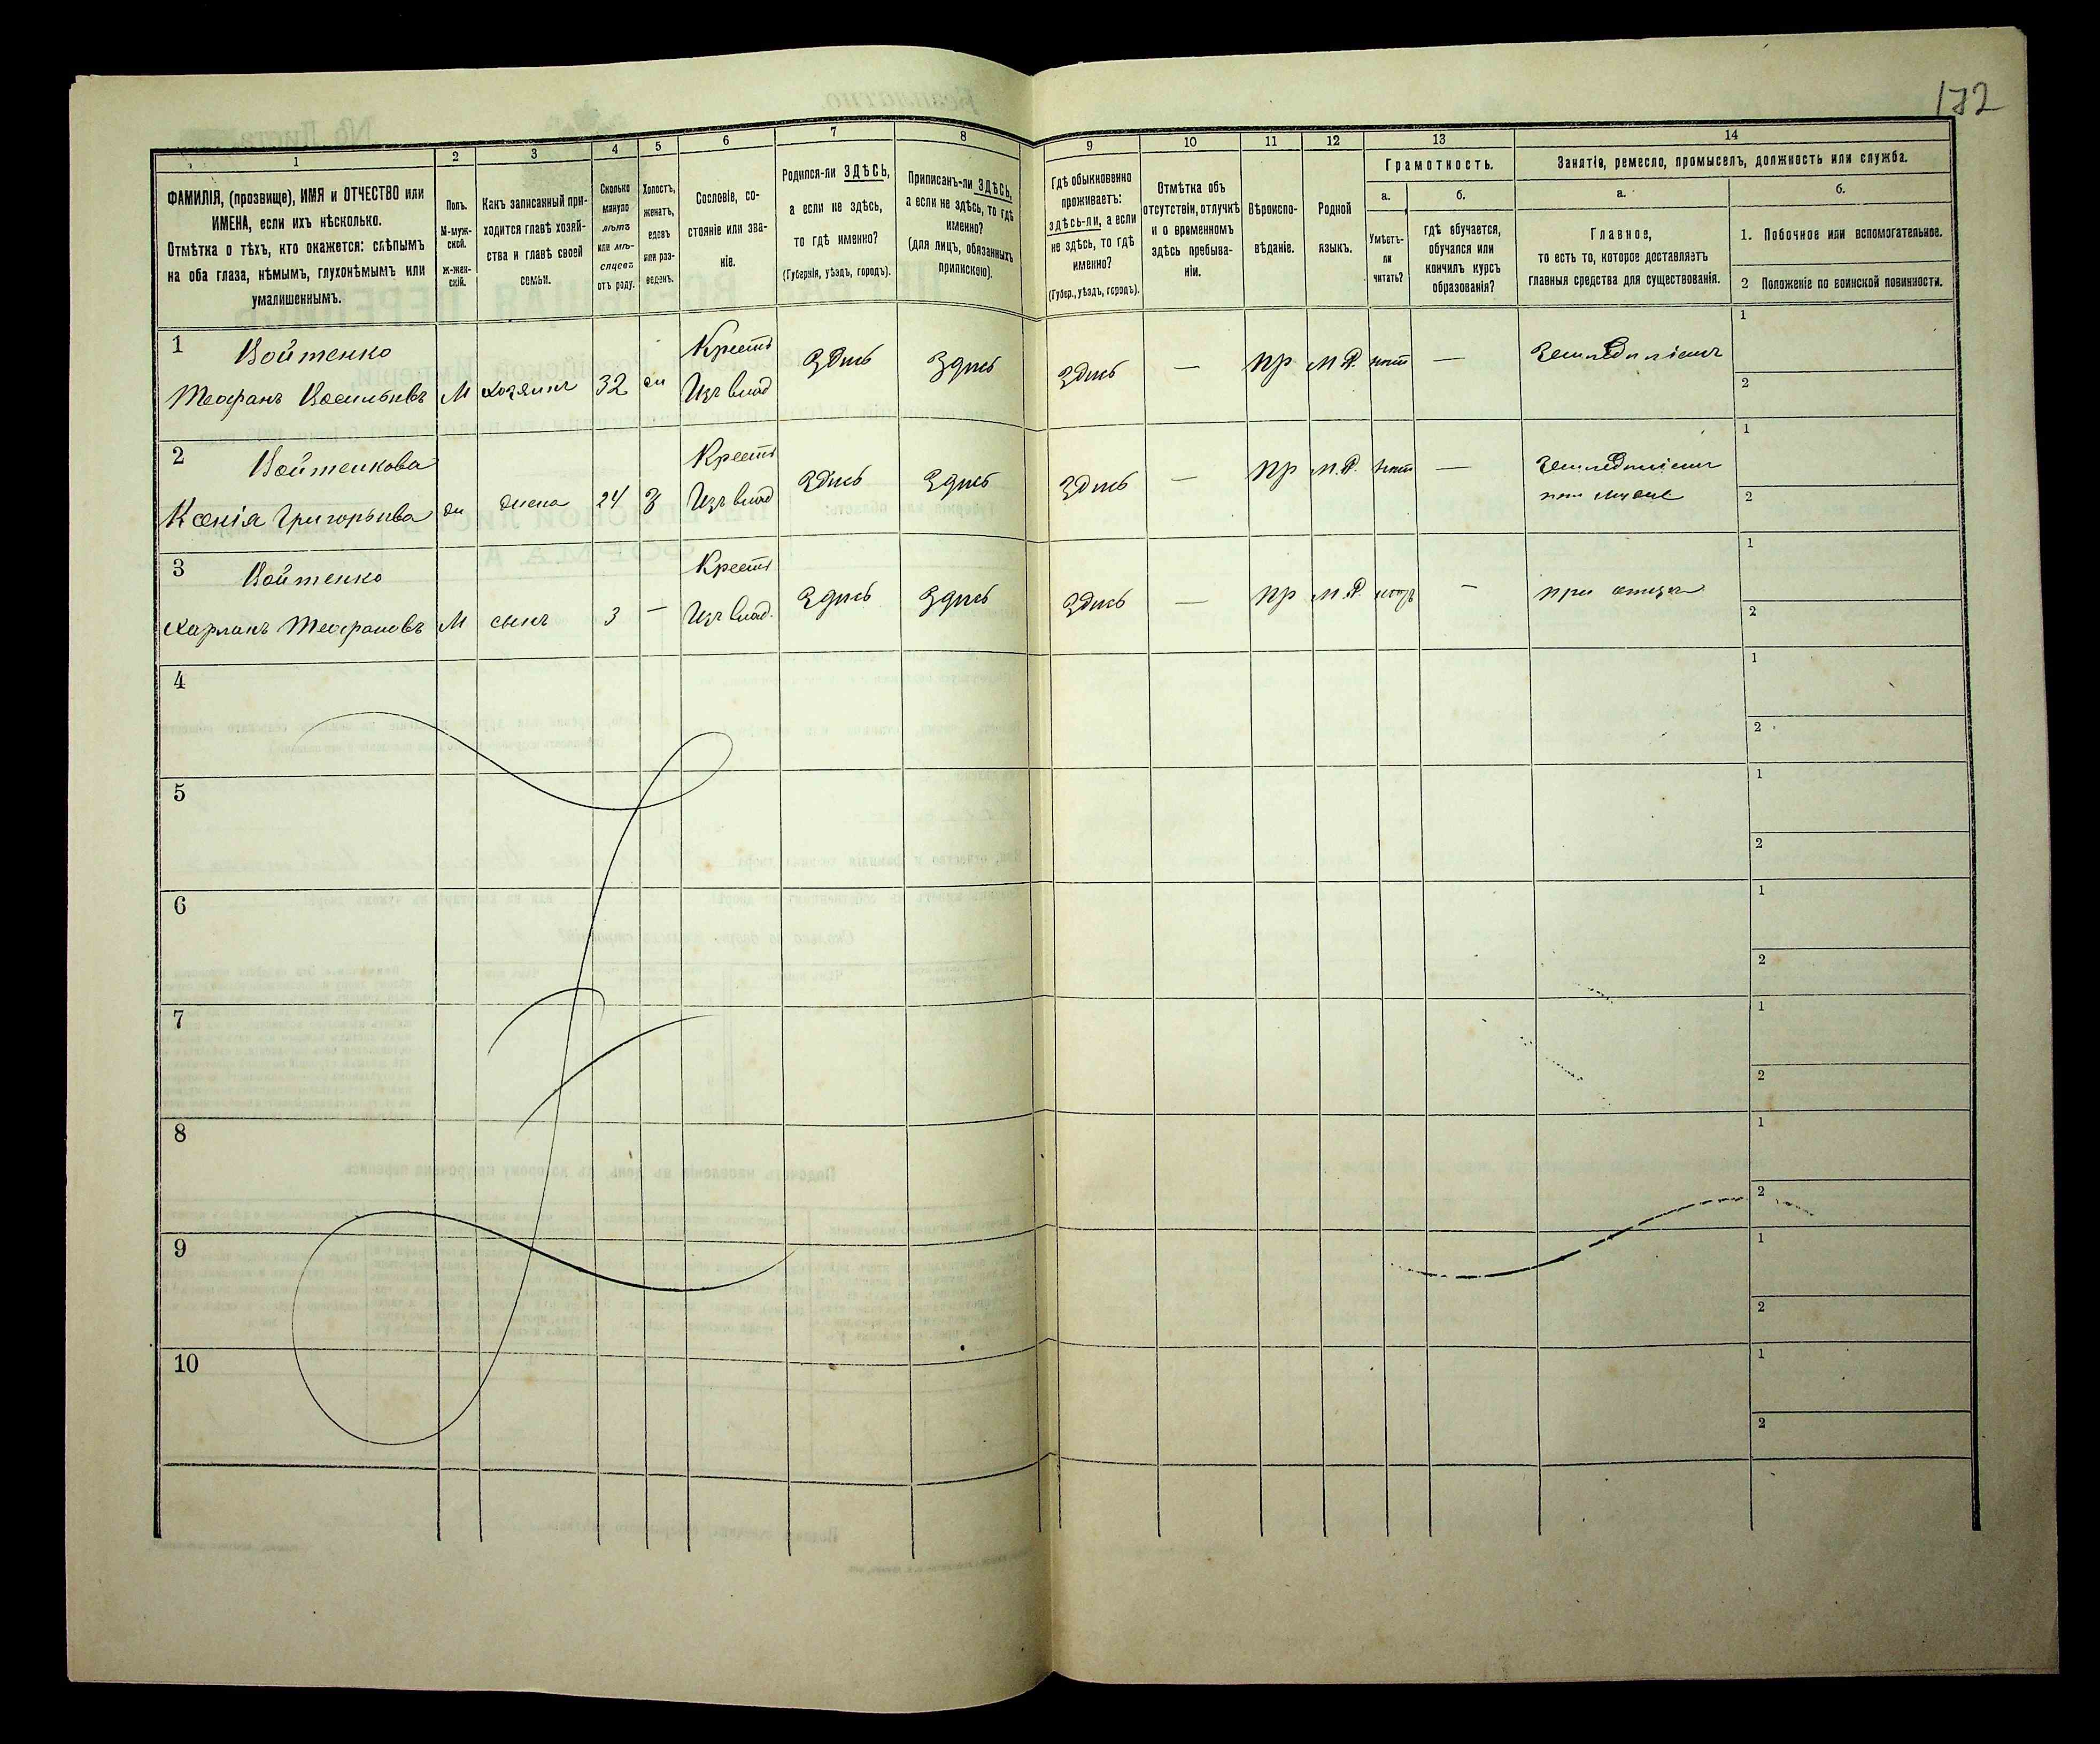 172
1
2
3
4
5
6
7
8
9
10
11
12
13
14
ФАМИЛІЯ, (прозвище), ИМЯ и ОТЧЕСТВО или
ИМЕНА, если ихъ нѣсколько.
Отмѣтка о тѣхъ, кто окажется: слѣпымъ
на оба глаза, нѣмымъ, глухонѣмымъ или
умалишеннымъ.
Полъ.
М-муж-
ской.
Ж-жен-
скій.
Какъ записанный при-
ходится главѣ хозяй-
ства и главѣ своей
семьи.
Сколько
минуло
лѣтъ
или мѣ-
сяцевъ
отъ роду.
Холостъ,
женатъ,
вдовъ
или раз-
веденъ.
Сословіе, со-
стояніе или зва-
ніе.
Родился-ли ЗДѢСЬ,
а если не здѣсь,
то гдѣ именно?
(Губернія, уѣздъ, городъ).
Приписанъ-ли ЗДѢСЬ,
а если не здѣсь, то гдѣ
именно?
(для лицъ, обязанныхъ
припискою).
Гдѣ обыкновенно
проживаетъ:
здѣсь-ли, а если
не здѣсь, то гдѣ
именно?
(Губер., уѣздъ, городъ).
Отмѣтка объ
отсутствіи, отлучкѣ
и о временномъ
здѣсь пребыва-
ніи.
Вѣроиспо-
вѣданіе.
Родной
языкъ.
Грамотность.
а.
Умѣетъ-
ли
читать?
б.
гдѣ обучается,
обучался или
кончилъ курсъ
образованія?
Занятіе, ремесло, промыселъ, должность или служба.
а.
Главное,
то есть то, которое доставляетъ
главныя средства для существованія.
б.
1. Побочное или вспомогательное.
2 Положеніе по воинской повинности.
1 Войтенко Крест
Теофанъ Васильевъ М хозяинъ 32 ж Изъ влад Здѣсь Здѣсь Здѣсь — пр М.Р. нѣт — Земледѣліемъ
1
2
2 Войтенкова Крест
Ксенія Григорьева ж жена 24 З Изъ влад Здѣсь Здѣсь Здѣсь — пр М.Р. нѣт — Земледѣліемъ
при мужѣ
1
2
3 Войтенко Крест
Харланъ Теофановъ М сынъ 3 — Изъ влад. Здѣсь Здѣсь Здѣсь — пр М.Р. — при отцѣ
1
2
4
1
2
5
1
2
6
1
2
7
1
2
8
1
2
9
1
2
10
1
2